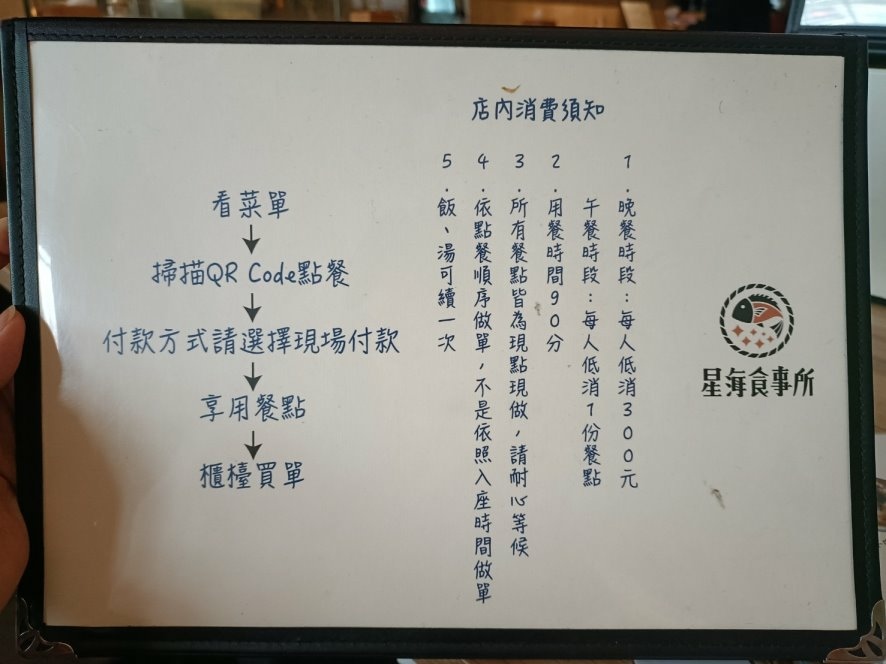 店內消費須知
1.晚餐時段：每人低消300元
午餐時段：每人低消1份餐點
2.用餐時間90分
3.所有餐點皆為現點現做，請耐心等候
4.依點餐順序做單，不是依照入座時間做單
5.飯、湯可續一次
看菜單
掃描QR Code點餐
付款方式請選擇現場付款
享用餐點
櫃檯買單
星海食事所